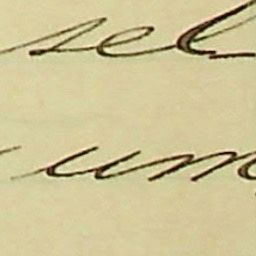 sel
um